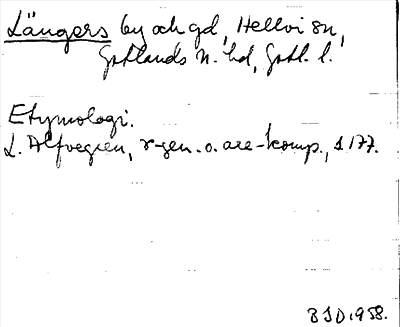 Längers by och gd, Hellvi sn,
Gotlands n. hd, Gotl. l.
Etymologi.
L. Alfvegren, r-gen. o. are-komp., s 177.
B I D 1958.